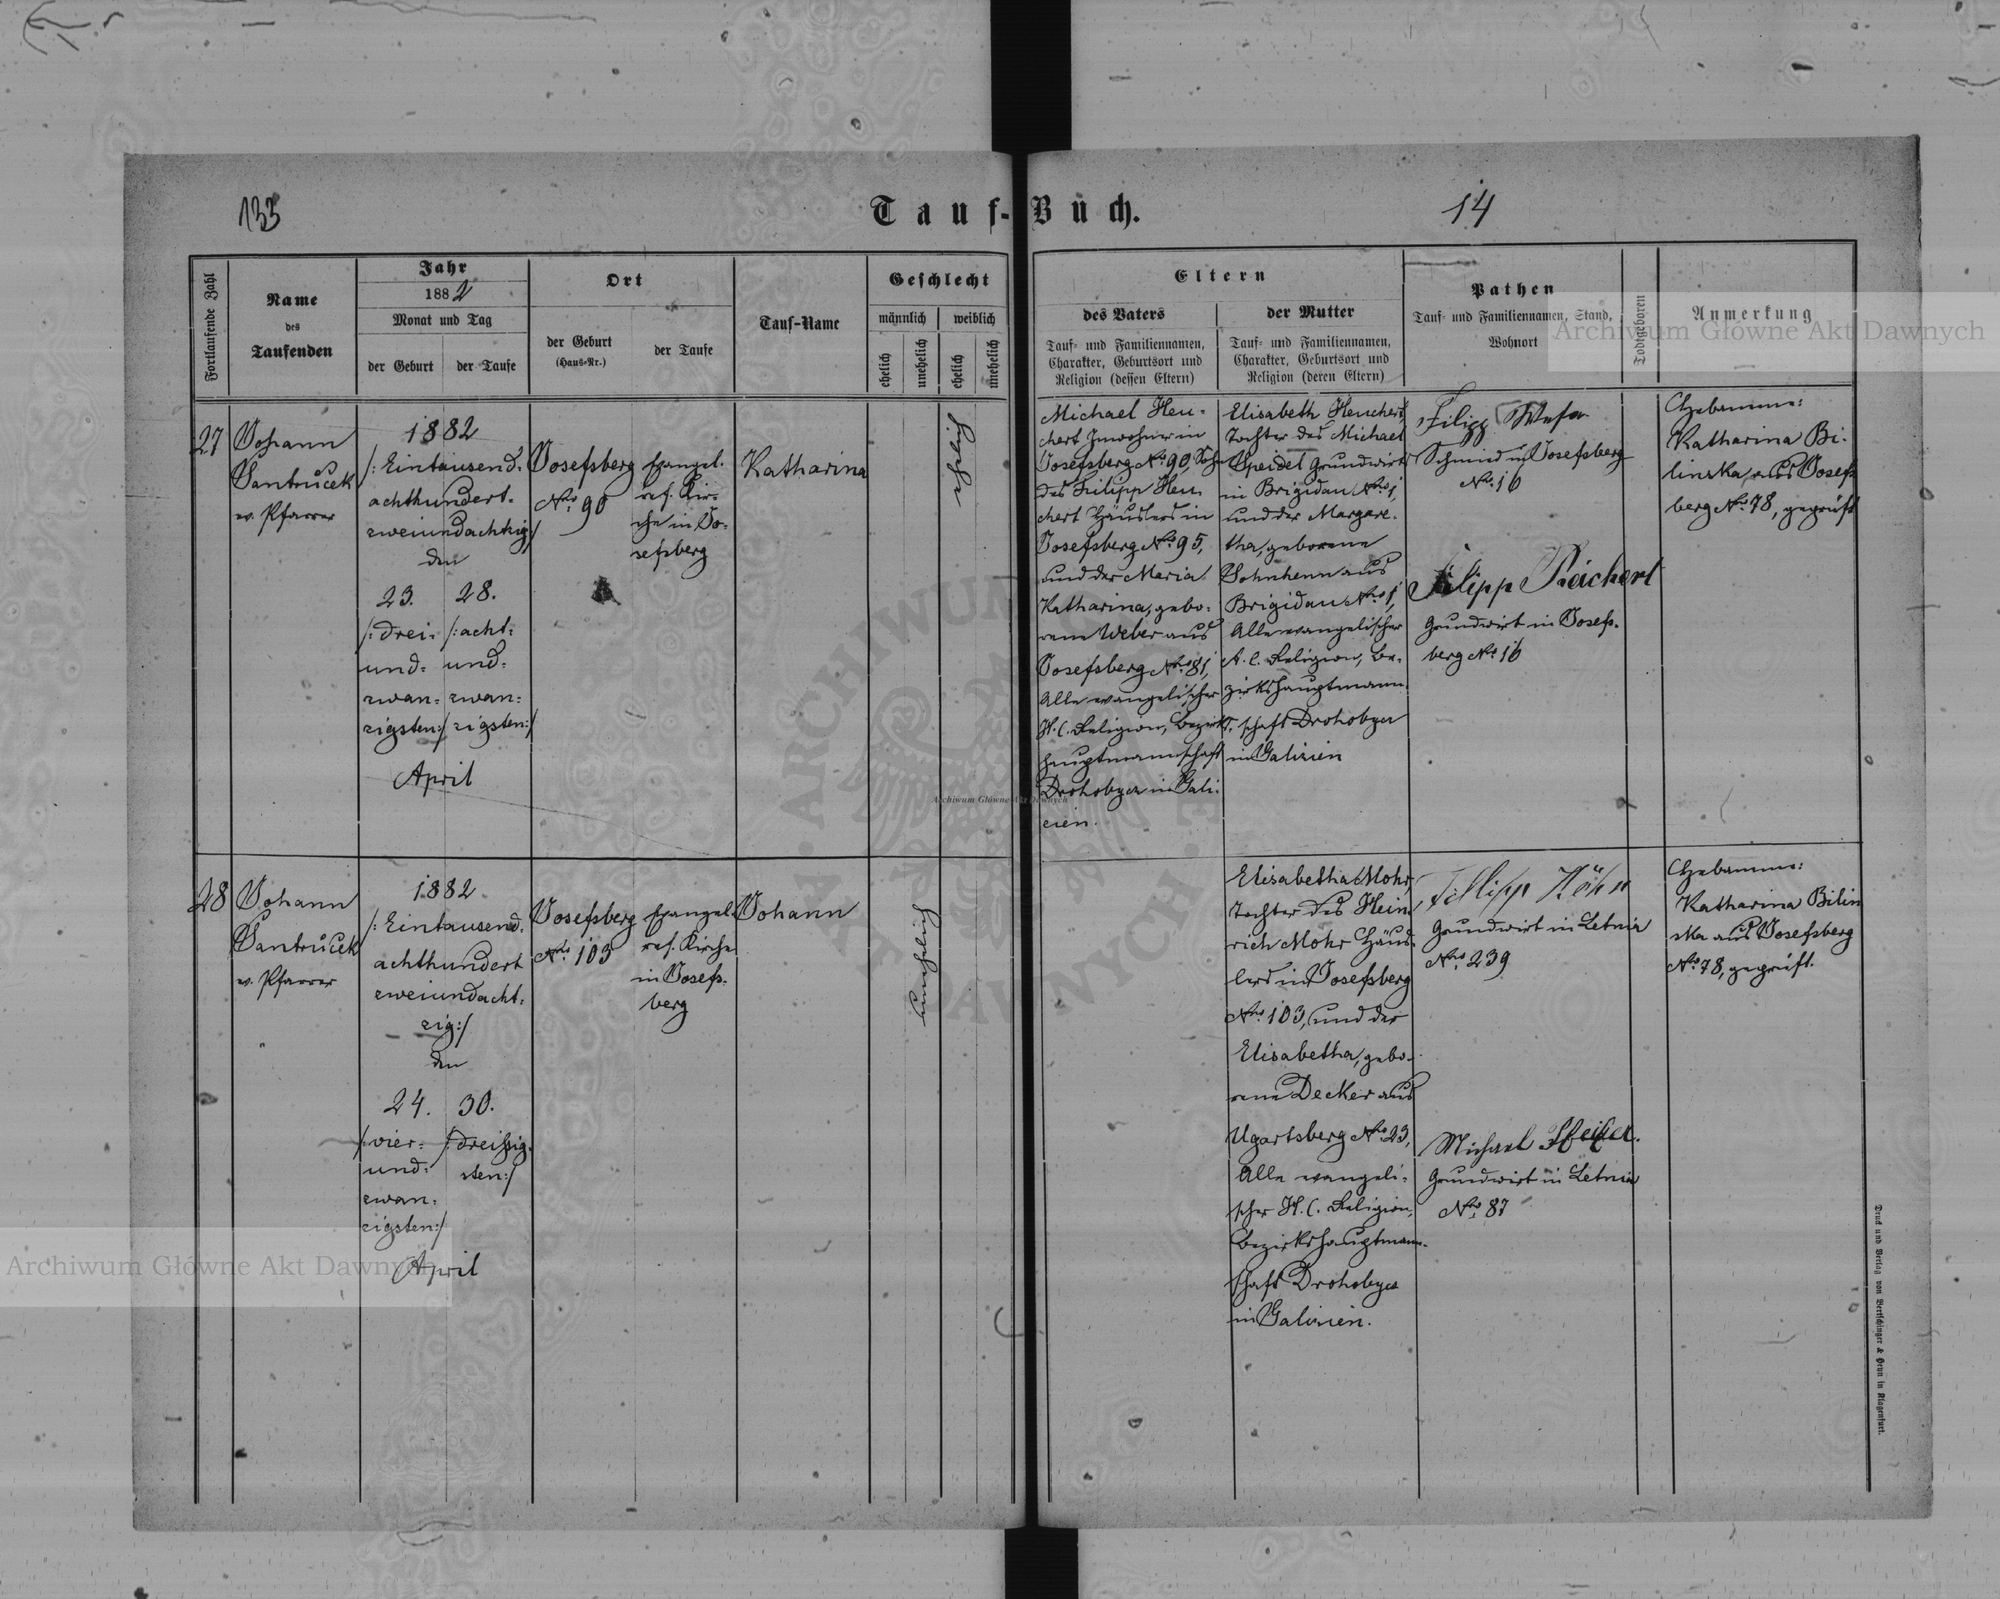 133
Tauf-Buch.
14
Fortlaufende Zahl
Name
des
Taufenden
Jahr
1882
Monat und Tag
der Geburt
der Taufe
Ort
der Geburt
(Haus-Nr.)
der Taufe
Tauf-Name
Geschlecht
männlich
weiblich
ehelich
unehelich
ehelich
unehelich
Eltern
des Vaters
Tauf- und Familiennamen,
Charakter, Geburtsort und
Religion (dessen Eltern)
der Mutter
Tauf- und Familiennamen,
Charakter, Geburtsort und
Religion (deren Eltern)
Pathen
Tauf- und Familiennamen, Stand,
Wohnort
Todtgeboren
Anmerkung
27
Johann
Jantrůček
ev. Pfarrer
1882
/: Eintausend-
achthundert-
zweiundachtzig :/
den
23.
/: drei-
und-
zwan-
zigsten :/
28.
/: acht-
und-
zwan-
zigsten :/
April
Josefsberg
Nro. 90
Evangel.
ref. Kir-
che in Jo-
sefsberg
Katharina
ehelich
Michael Heu-
chert Inwohner in
Josefsberg Nro. 90, Sohn
des Filipp Heu-
chert Häuslers in
Josefsberg Nro. 95,
und der Maria
Katharina, gebo-
rene Weber aus
Josefsberg Nro. 81,
Alle evangelischer
H. C. Religion, Bezirks-
hauptmannschaft
Drohobycz in Gali-
zien.
Elisabeth Heuchert,
Tochter des Michael
Speidel Grundwirts
in Brigidau Nro. 1,
und der Margare-
tha, geborene
aus
Brigidau Nro. 1,
Alle evangelischer
A. C. Religion, Be-
zirkshauptmann-
schaft Drohobycz
in Galizien
Filipp
Schmied in Josefsberg
No. 16
Filipp Reichert
Grundwirt in Josefs-
berg No. 16
Hebamme:
Katharina Bi-
linska, aus Josefs-
berg Nro. 78, geprüft
28
Johann
Jantrůček
ev. Pfarrer
1882
/: Eintausend-
achthundert
zweiundacht-
zig :/
den
24.
/: vier-
und-
zwan-
zigsten :/
30.
/: dreißig-
sten :/
April
Josefsberg
Nro. 103
Evangel.
ref. Kirche
in Josefs-
berg
Johann
unehelich
Elisabetha Mohr,
Tochter des Hein-
rich Mohr Häus-
lers in Josefsberg
Nro. 103, und der
Elisabetha, gebo-
rene Decker aus
Ugartsberg Nro. 23,
Alle evangeli-
scher H. C. Religion,
Bezirkshauptmann-
schaft Drohobycz
in Galizien.
Fillipp Köhn
Grundwirt in Letnia
Nro. 239
Michael
Grundwirt in Letnia
Nro. 87
Hebamme:
Katharina Bilin
ska aus Josefsberg
Nro. 78, geprüft.
Druck und Verlag von Bertschinger & Heyn in Klagenfurt.
Archiwum Główne Akt Dawnych
Archiwum Główne Akt Dawnych
Archiwum Główne Akt Dawnych
ARCHIWUM GŁÓWNE AKT DAWNYCH